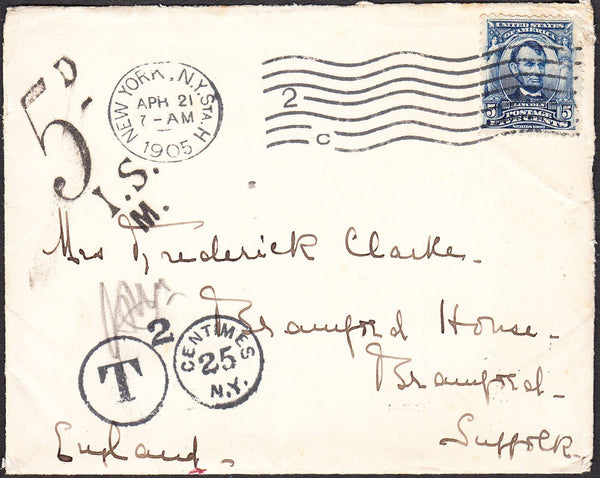 UNITED STATES
OF AMERICA
5 LINCOLN 5
POSTAGE
FIVE CENTS
SERIES 1902
NEW YORK, N.Y. STA. H
APR 21
7-AM
1905
2
C
5D.
I.S.
M.
Mrs Frederick Clarke.
Bramford House.
Bramford.
Suffolk.
England.
2
T
CENTIMES
25
N.Y.